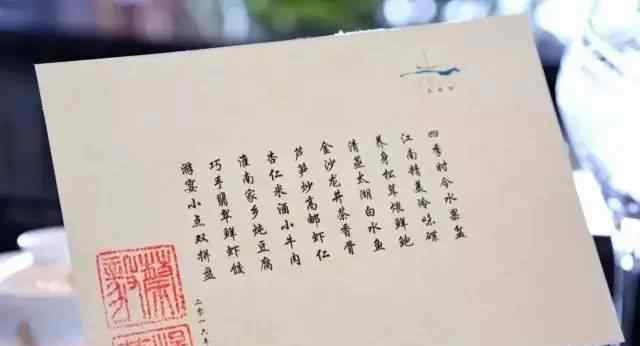 四季时令水果盆
江南精美冷味碟
养身松茸炖鲜鲍
清蒸太湖白水鱼
金沙龙井茶香骨
芦笋炒高邮虾仁
杏仁米酒小牛肉
淮南家乡炖豆腐
巧手翡翠鲜虾饺
游宴小点双拼盘
二零一六年